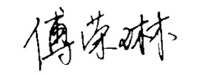 傅荣琳